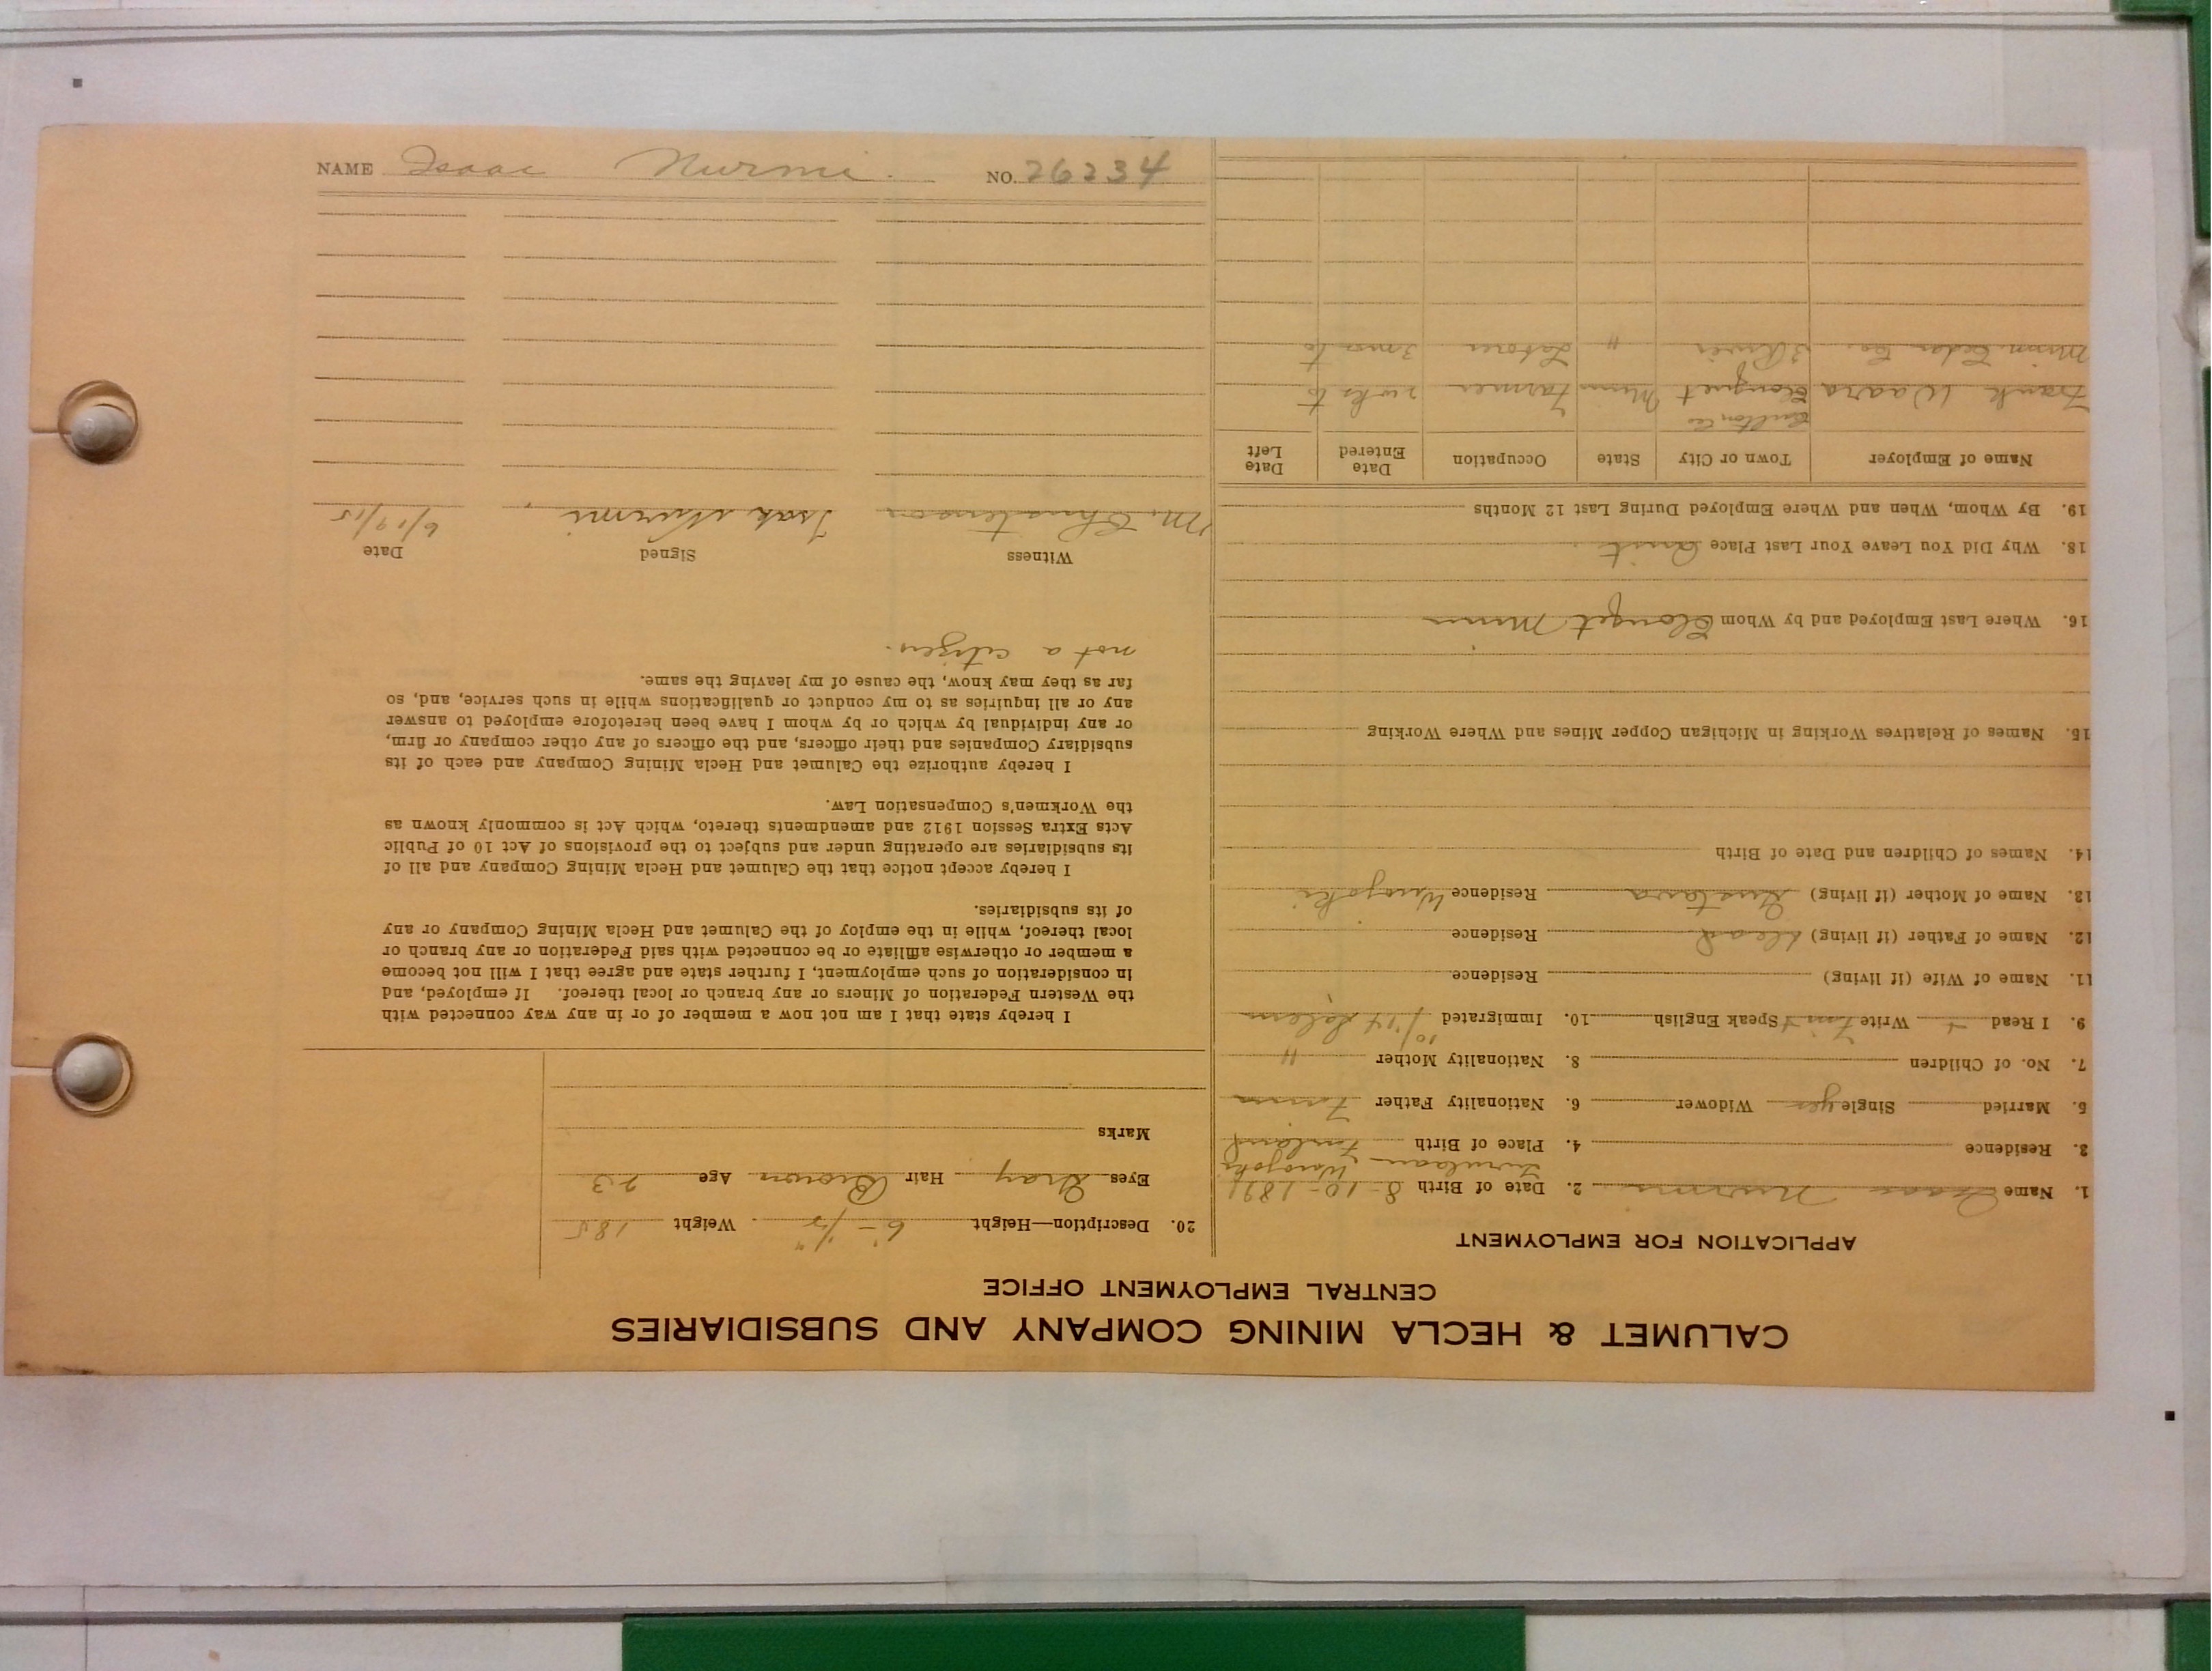 CALUMET & HECLA MINING COMPANY AND SUBSIDIARIES
CENTRAL EMPLOYMENT OFFICE
APPLICATION FOR EMPLOYMENT
1. Name Isaac Nurmi 2. Date of Birth 8-10-1891
3. Residence 4. Place of Birth Finland
5. Married Single yes Widower 6. Nationality Father Finn
7. No. of Children 8. Nationality Mother "
9. I Read + Write Finn + Speak English 10. Immigrated 10/14
11. Name of Wife (if living) Residence
12. Name of Father (if living) dead Residence
13. Name of Mother (if living) Gustava Residence
14. Names of Children and Date of Birth
15. Names of Relatives Working in Michigan Copper Mines and Where Working
16. Where Last Employed and by Whom Cloquet Minn
18. Why Did You Leave Your Last Place Quit
19. By Whom, When and Where Employed During Last 12 Months
Name of Employer Town or City State Occupation Date Entered Date Left
Carlton Co
Frank Waara Cloquet Minn Farmer 2 wks to
Minn. Cedar Co. " Laborer 3 mos to
20. Description—Height 6'-1/2" Weight 185
Eyes Gray Hair Brown Age 23
Marks
I hereby state that I am not now a member of or in any way connected with
the Western Federation of Miners or any branch or local thereof. If employed, and
in consideration of such employment, I further state and agree that I will not become
a member or otherwise affiliate or be connected with said Federation or any branch or
local thereof, while in the employ of the Calumet and Hecla Mining Company or any
of its subsidiaries.
I hereby accept notice that the Calumet and Hecla Mining Company and all of
its subsidiaries are operating under and subject to the provisions of Act 10 of Public
Acts Extra Session 1912 and amendments thereto, which Act is commonly known as
the Workmen's Compensation Law.
I hereby authorize the Calumet and Hecla Mining Company and each of its
subsidiary Companies and their officers, and the officers of any other company or firm,
or any individual by which or by whom I have been heretofore employed to answer
any or all inquiries as to my conduct or qualifications while in such service, and, so
far as they may know, the cause of my leaving the same.
not a citizen.
Witness Signed Date
M. Christenson Isak Nurmi 6/19/15
NAME Isaac Nurmi. NO. 26234